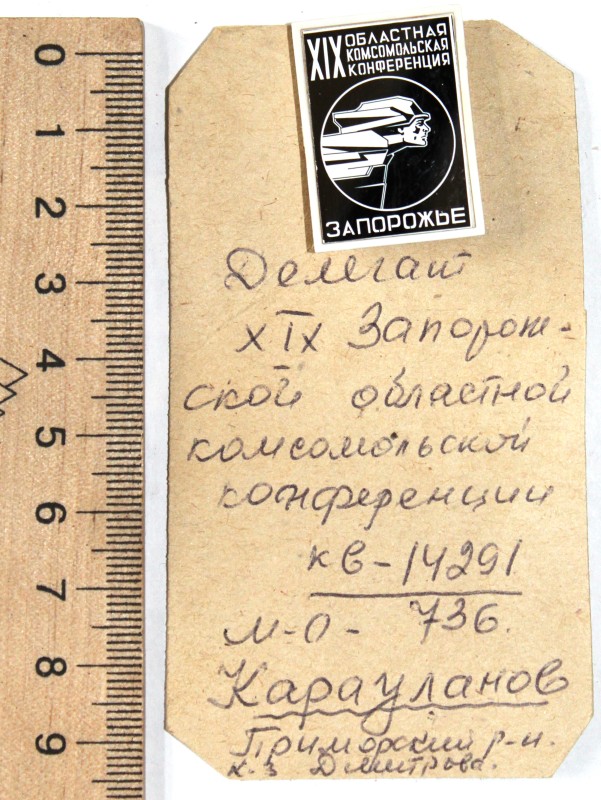 XIX ОБЛАСТНАЯ
КОМСОМОЛЬСКАЯ
КОНФЕРЕНЦИЯ
ЗАПОРОЖЬЕ
Делегат
XIX Запорож-
ской областной
комсомольской
конференции
кв-14291
м-о- 736.
Карауланов
Приморский р-н.
к-з Димитрова.
0
1
2
3
4
5
6
7
8
9